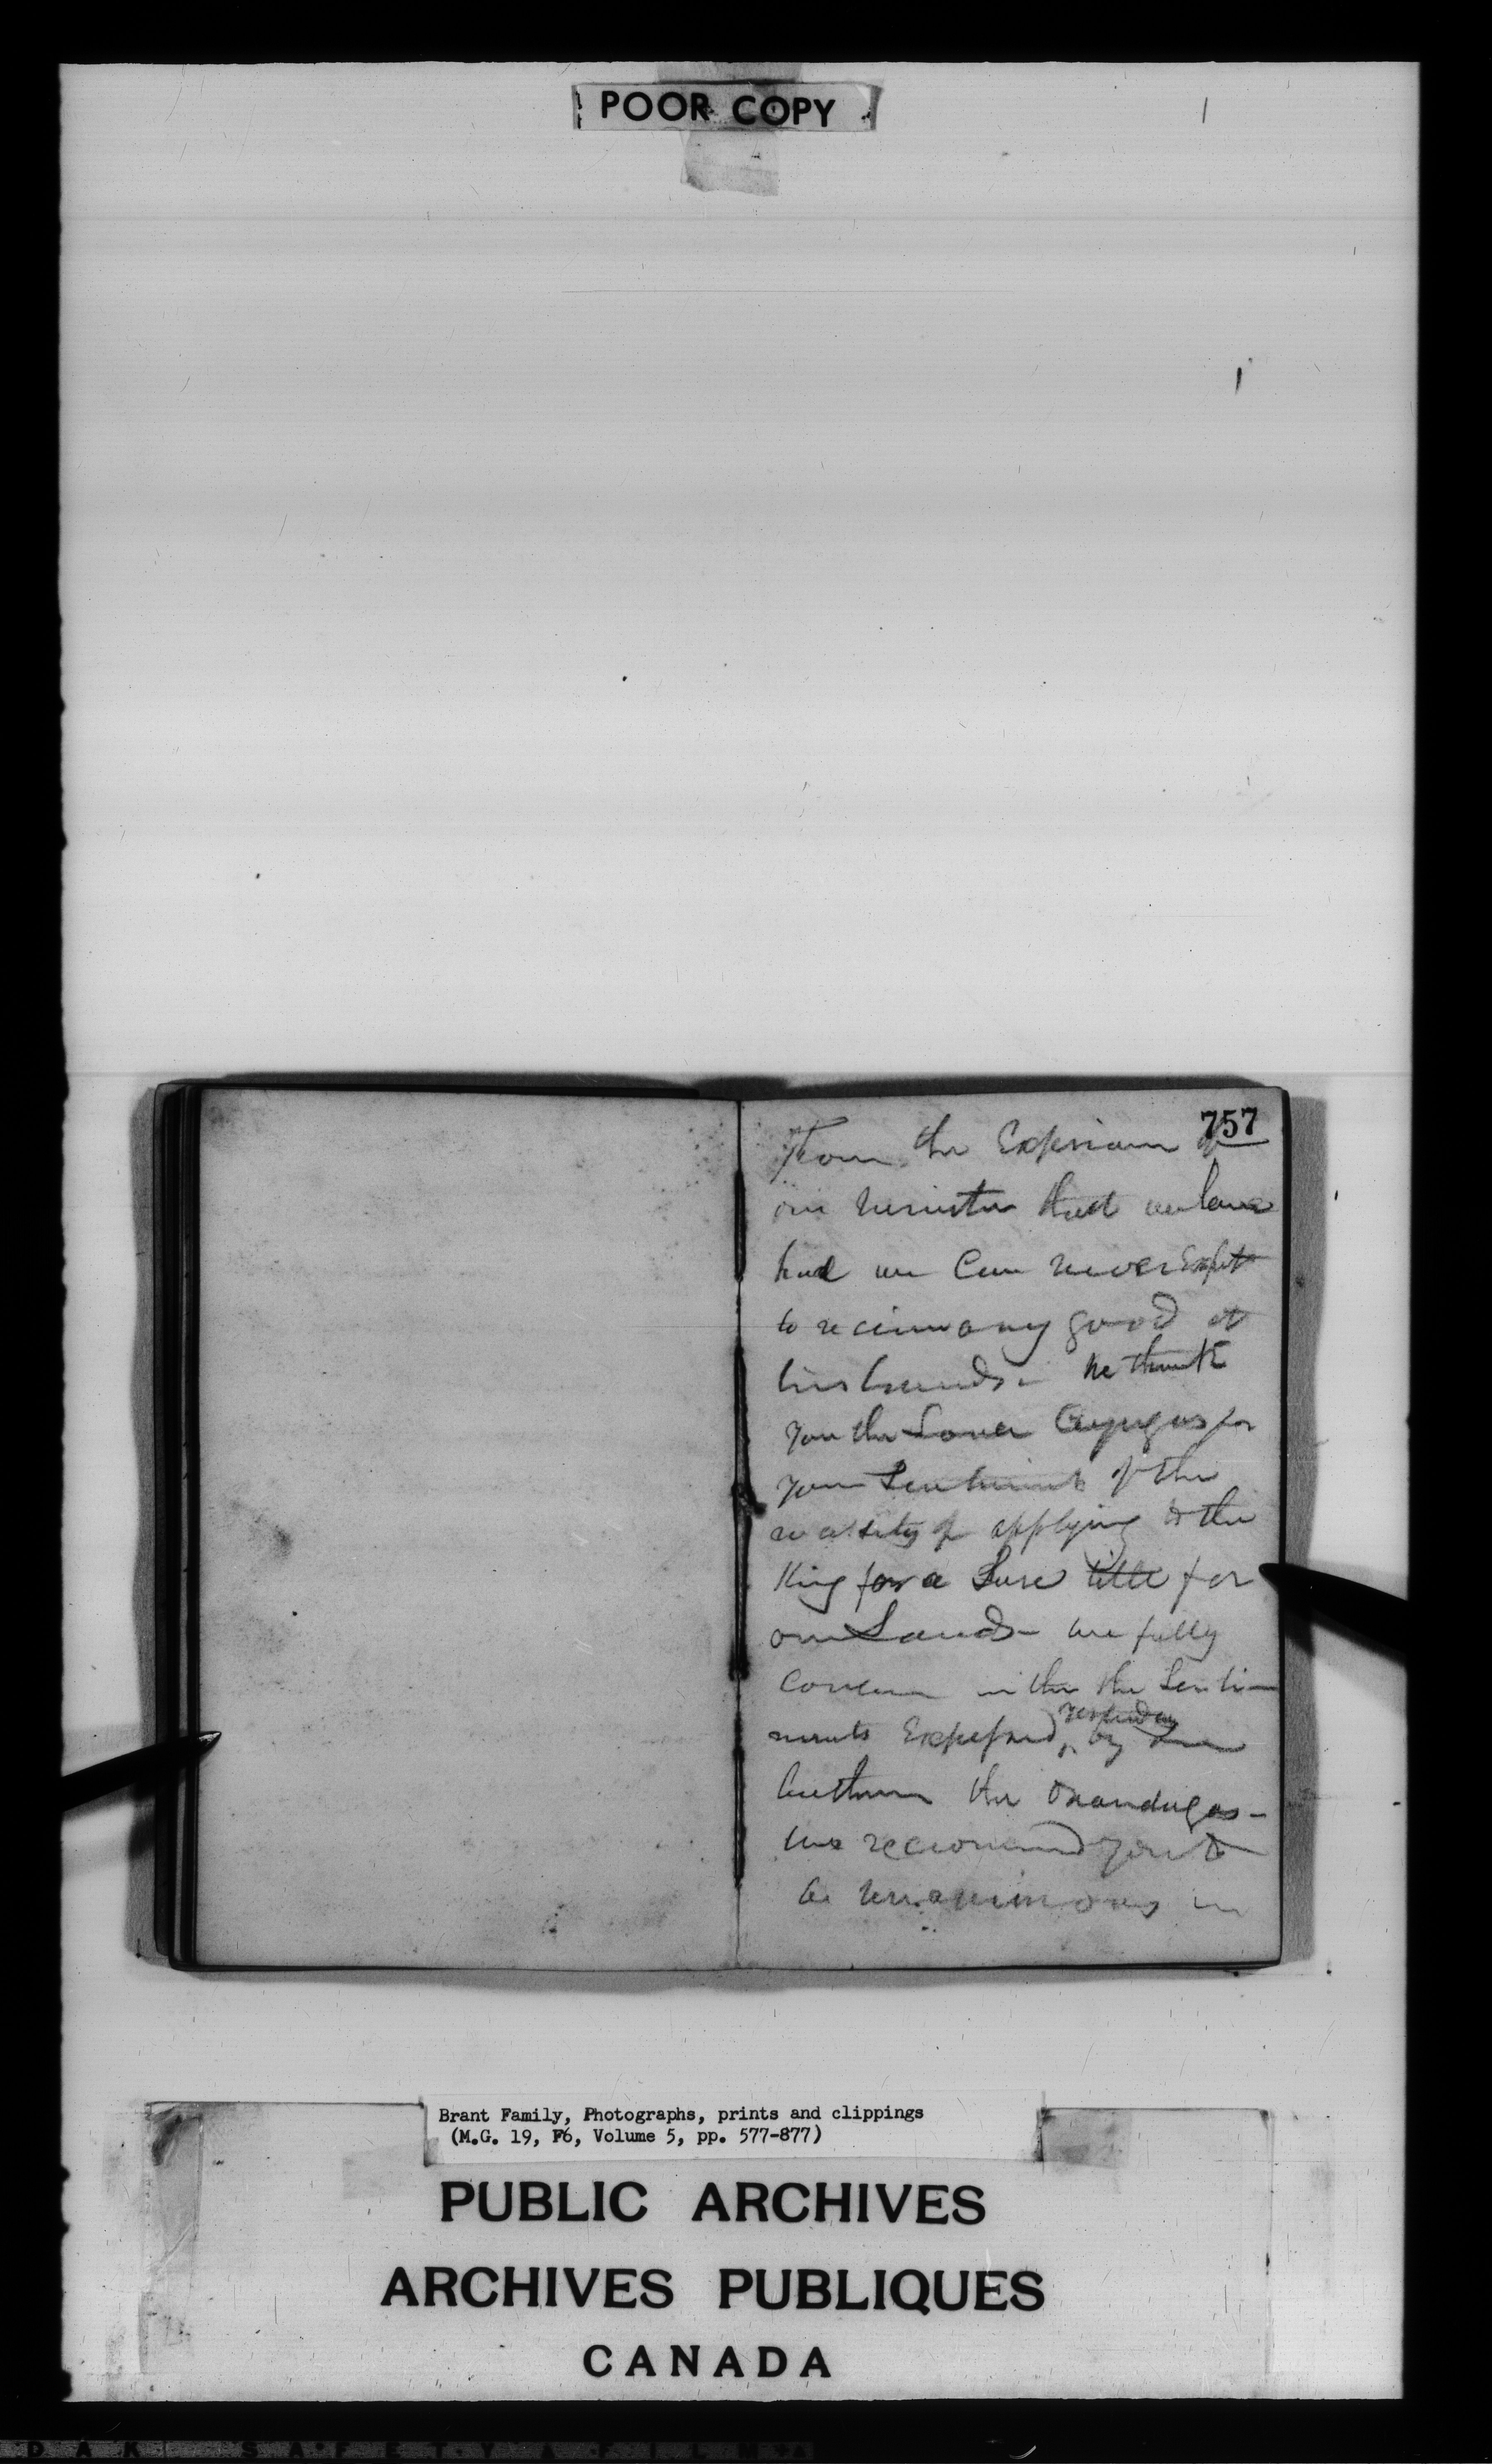 POOR COPY
757
From the Experience of
our Minister that we have
had we Can never Expect
to receive any good at
his hands - We thank
you the Lower Cayugas for
your Sentiments of the
necessity of applying to the
King for a Sure title for
our Lands - we fully
Concur with the Senti-
yesterday
ments Expressed by our
brethren the Onandagas -
we reccommend you to
be unanimous in
Brant Family, Photographs, prints and clippings
(M.G. 19, F6, Volume 5, pp. 577-877)
PUBLIC ARCHIVES
ARCHIVES PUBLIQUES
CANADA
SAFETY FILM